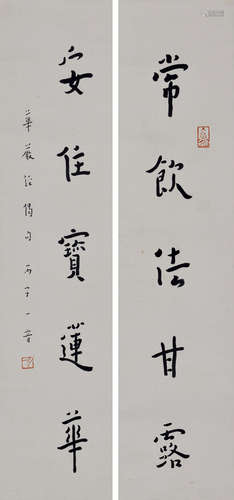 常飲法甘露
安住寶蓮華
華嚴經偈句 丙子 一音